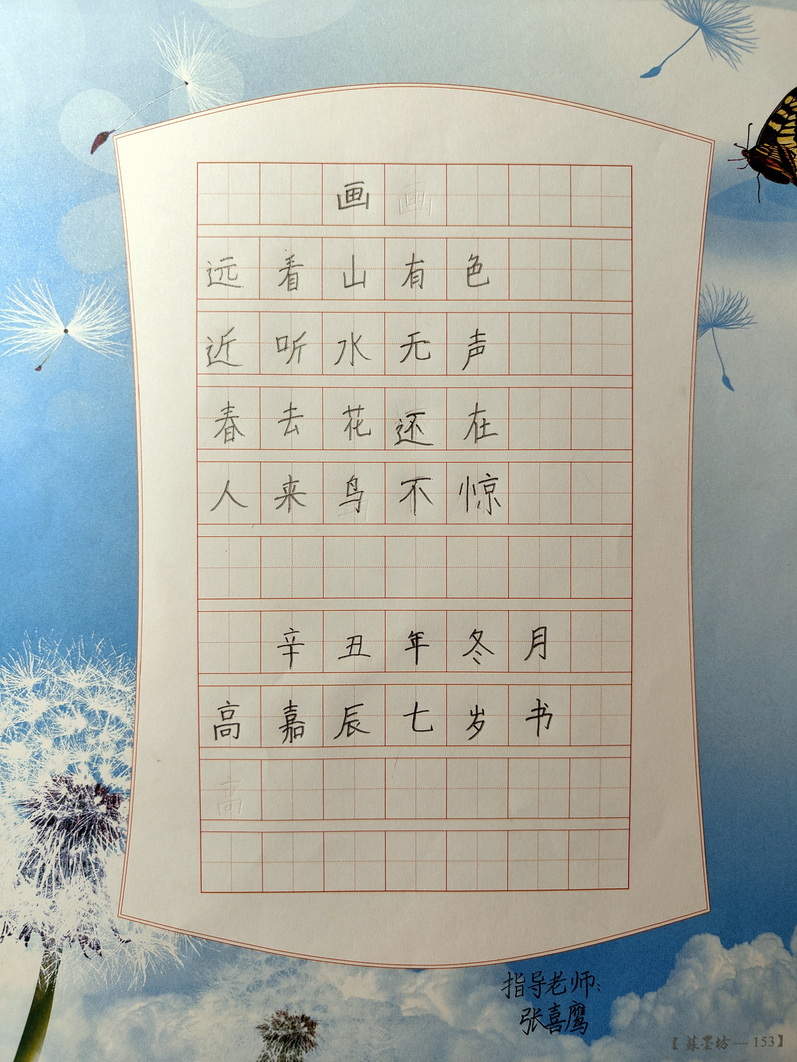 画 画
远看山有色
近听水无声
春去花还在
人来鸟不惊
辛丑年冬月
高嘉辰七岁书
高
指导老师:
张喜鹰
【蘇墨坊—153】